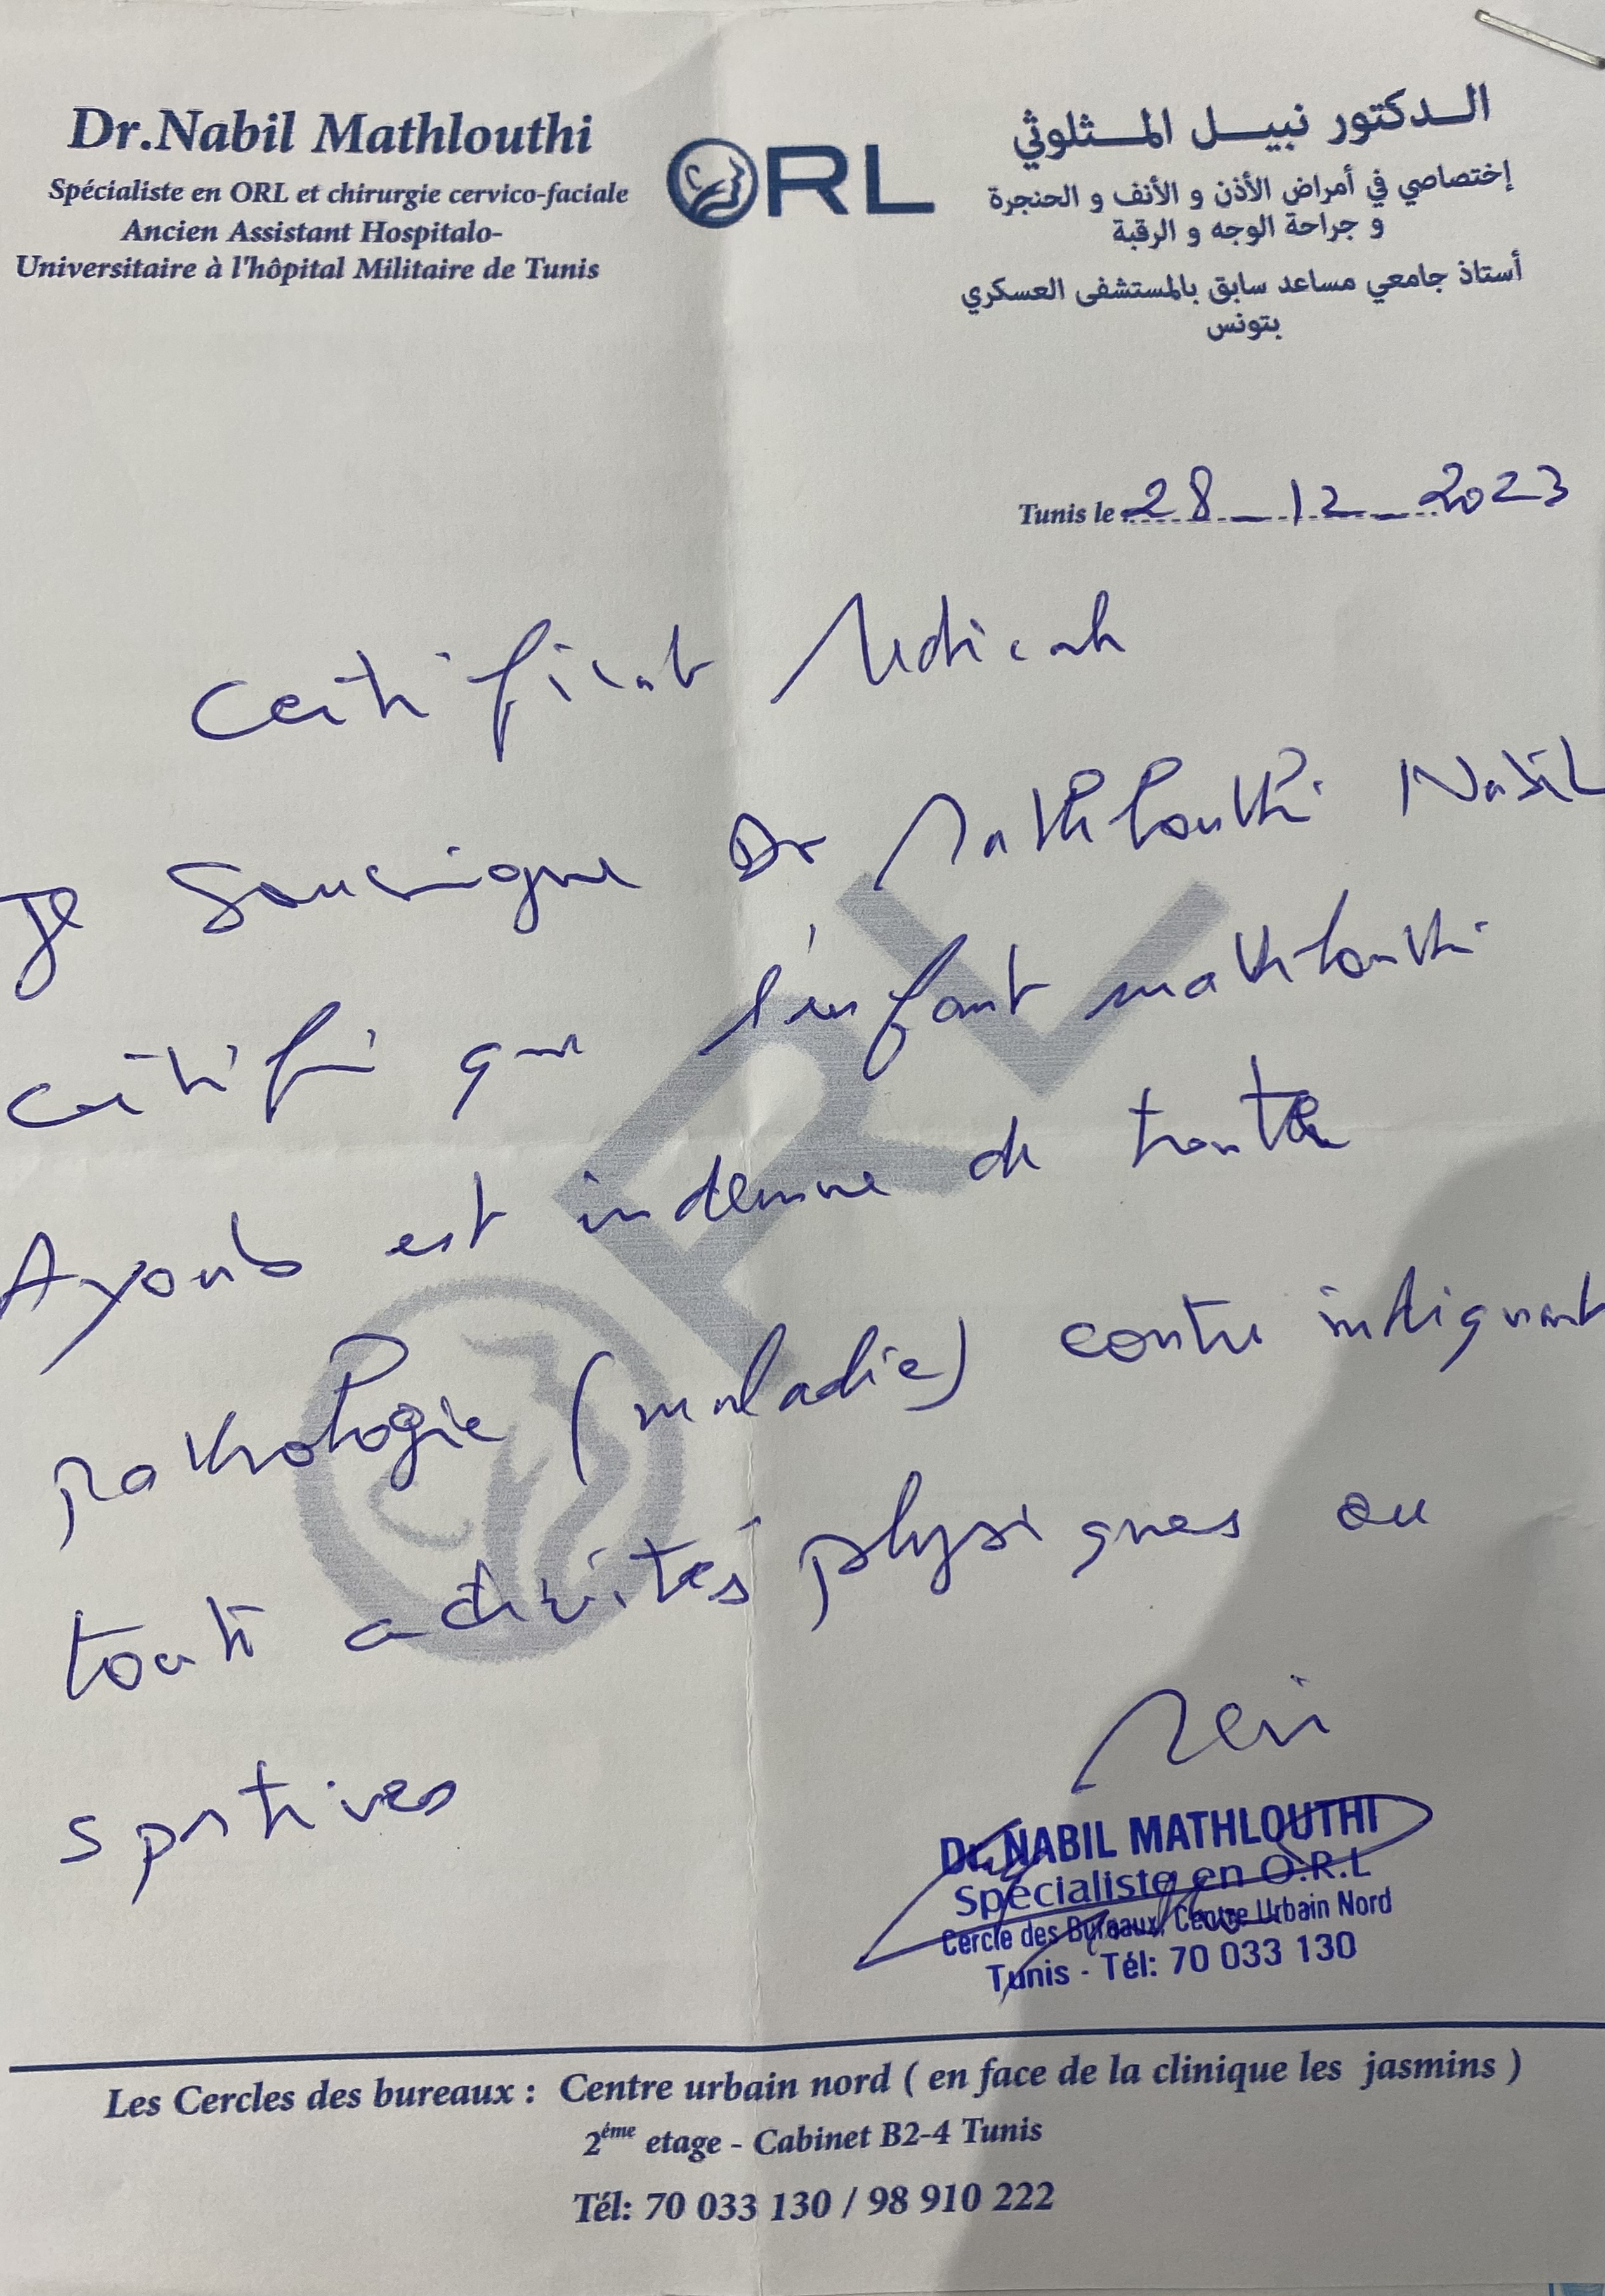 Dr.Nabil Mathlouthi
Spécialiste en ORL et chirurgie cervico-faciale
Ancien Assistant Hospitalo-
Universitaire à l'hôpital Militaire de Tunis
ORL
الـدكتور نبيـل المـثلوثي
إختصاصي في أمراض الأذن و الأنف و الحنجرة
و جراحة الوجه و الرقبة
أستاذ جامعي مساعد سابق بالمستشفى العسكري
بتونس
Tunis le 28_12_2023
Certificat Medical
Je soussigne Dr Mathlouthi Nabil
certifi que l'enfant mathlouthi
Ayoub est indemne de toute
pathologie (maladie) contre indiquant
toute activités physiques ou
sportives
ORL
Dr. NABIL MATHLOUTHI
Spécialiste en O.R.L
Cercle des Bureaux, Centre Urbain Nord
Tunis - Tél: 70 033 130
Les Cercles des bureaux : Centre urbain nord ( en face de la clinique les jasmins )
2éme etage - Cabinet B2-4 Tunis
Tél: 70 033 130 / 98 910 222